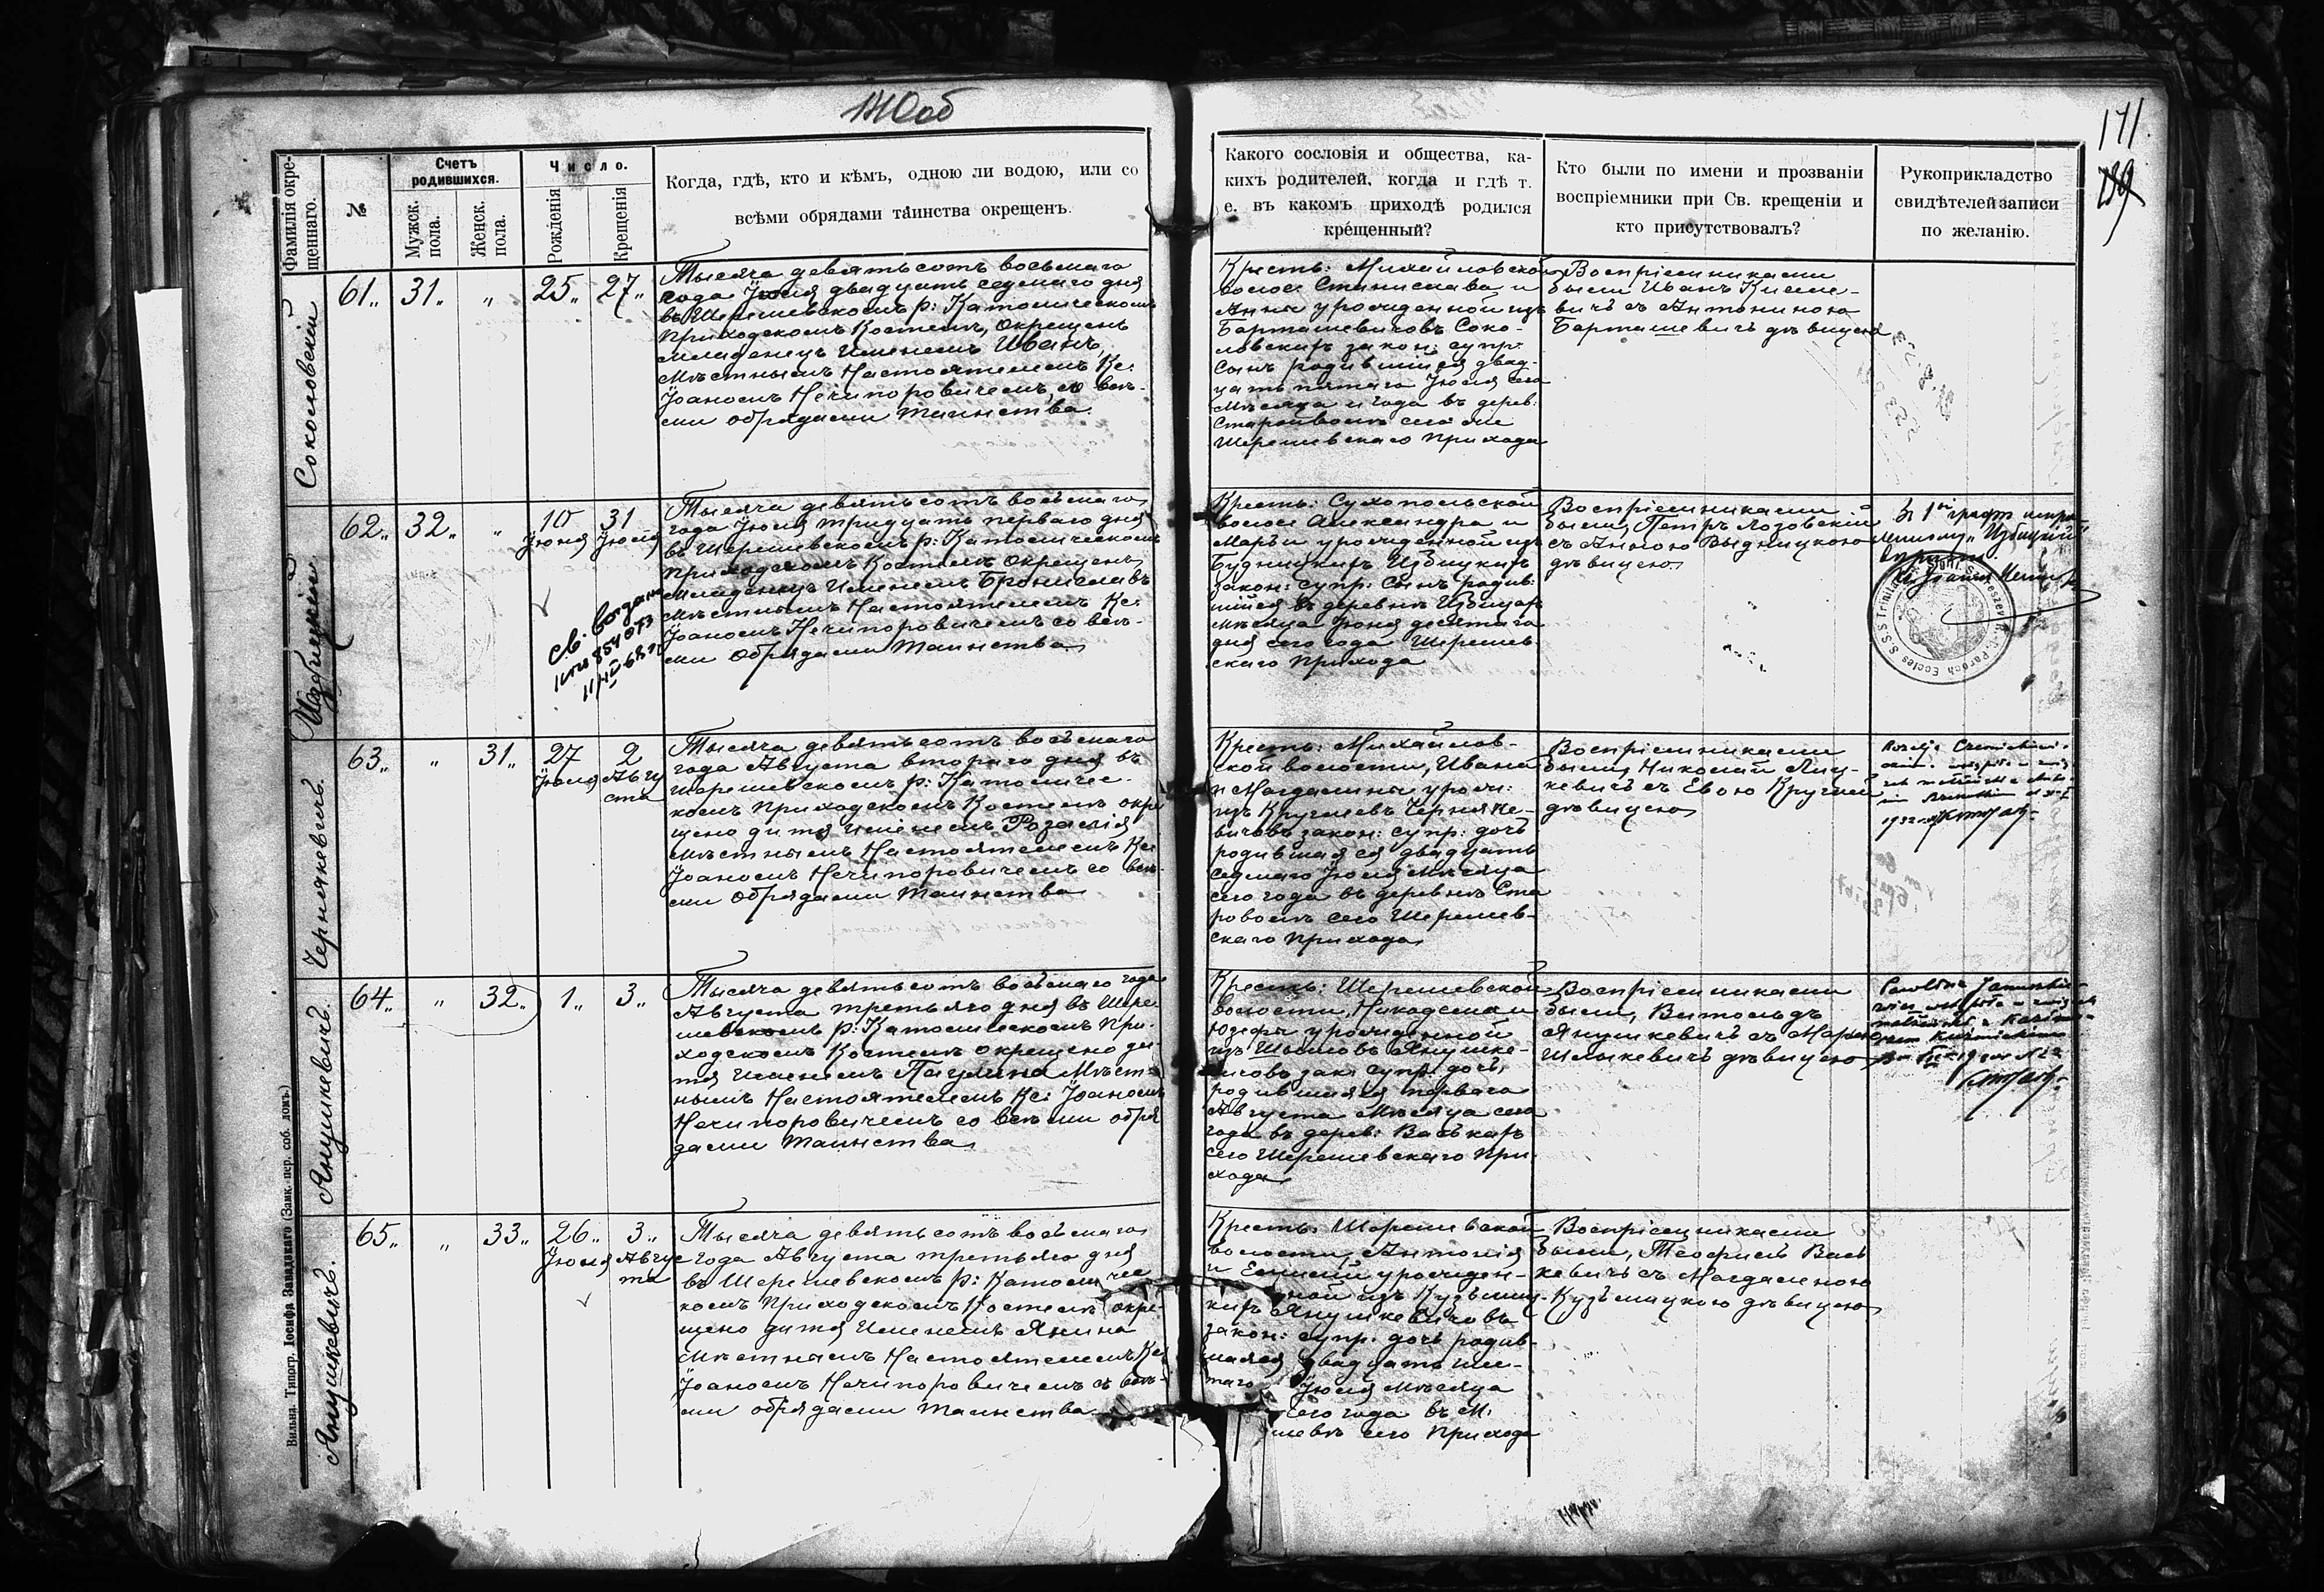 140об
171.
Фамилія окре-
щеннаго.
№
Счетъ
родившихся.
Мужск.
пола.
Женск.
пола.
Число.
Рожденія
Крещенія
Когда, гдѣ, кто и кѣмъ, одною ли водою, или со
всѣми обрядами таинства окрещенъ.
Какого сословія и общества, ка-
кихъ родителей, когда и гдѣ т.
е. въ какомъ приходѣ родился
крещенный?
Кто были по имени и прозванію
воспріемники при Св. крещеніи и
кто присутствовалъ?
Рукоприкладство
свидѣтелей записи
по желанію.
Соколовскій
61„ 31„ „ 25„ 27„
Тысяча девятьсотъ восьмаго
года Іюля двадцать седьмаго дня
въ Шерешевскомъ р: Католическомъ
Приходскомъ Костелѣ, окрещенъ
младенецъ Именемъ Иванъ,
Мѣстнымъ Настоятелемъ Кс:
Іоаномъ Нечипоровичемъ, со всѣ-
ми обрядами таинства
Кресть: Михайловской
волос: Станислава и
Анны урожденной изъ
Барташевичовъ Соко-
ловскихъ закон: супр:
сынъ родившійся двад-
цать пятаго Іюля сего
Мѣсяца и года въ дерев:
Староволѣ сего же
Шерешевскаго Прихода
Воспріемниками
были Иванъ
съ Антониною
Барташевичъ дѣвицею
Избицкій
62„ 32„ „ 10 Іюня 31 Іюля
Тысяча девятьсотъ восьмаго
года Іюля тридцать перваго дня
въ Шерешевскомъ р: Католическомъ
Приходскомъ Костелѣ окрещенъ
Младенецъ Именемъ Брониславъ
Мѣстнымъ Настоятелемъ Кс:
Іоаномъ Нечипоровичемъ со всѣ-
ми Обрядами Таинства
Св. выдано
Кресть: Сухопольской
волос: Александра и
Марьи урожденной изъ
Будницкихъ Избицкихъ
закон: супр: сынъ родив-
шійся въ деревнѣ Избицахъ
Мѣсяца Іюня десятаго
дня сего года Шерешев-
скаго Прихода
Воспріемниками
были, Петръ Лозовскій
съ Анною Выдницкою
дѣвицею
Чернякевичъ.
63„ „ 31„ 27 Іюля 2 Авгу
ста
Тысяча девятьсотъ восьмаго
года Августа втораго дня въ
Шерешевскомъ р: Католичес-
комъ Приходскомъ Костелѣ окре
щено дитя именемъ Розалія
Мѣстнымъ Настоятелемъ Кс:
Іоаномъ Нечипоровичемъ со всѣ-
ми Обрядами Таинства
Кресть: Михайлов-
ской волости, Ивана
и Магдалины урож:
изъ Круглевъ Черняке-
вичовъ закон: супр: дочь
родившаяся двадцать
седьмаго Іюля Мѣсяца
сего года въ деревнѣ Ста
роволѣ сего Шерешев-
скаго Прихода
Воспріемниками
были, Николай Яцу-
кевичъ съ Евою Круглей
дѣвицею
Янушкевичъ.
64„ „ 32„ 1„ 3„
Тысяча девятьсотъ восьмаго года
Августа третьяго дня въ Шере
шевскомъ р: Католическомъ При-
ходскомъ Костелѣ окрещено ди-
тя Именемъ Паулина Мѣст-
нымъ Настоятелемъ Кс: Іоаномъ
Нечипоровичемъ со всѣми обря
дами Таинства
Кресть: Шерешевской
волости, Никодема и
Юзефы урожденной
изъ Шымовъ Янушке-
вичовъ зак: супр: дочь,
родившаяся перваго
Августа Мѣсяца сего
года въ дерев: Васькахъ
сего Шерешевскаго При-
хода
Воспріемниками
были, Витольдъ
Янушкевичъ съ Марьею
дѣвицею
Янушкевичъ.
65„ „ 33„ 26„ Іюля 3„ Авгус
та
Тысяча девятьсотъ восьмаго
года Августа третьяго дня
въ Шерешевскомъ р: Католичес
комъ Приходскомъ Костелѣ окре-
щено дитя Именемъ Янина
Мѣстнымъ Настоятелемъ Кс:
Іоаномъ Нечипоровичемъ съ всѣ-
ми обрядами таинства
Кресть: Шерешевской
волости, Антонія
и Емиліи урожден-
ной изъ Кузьмиц-
кихъ Янушкевичовъ
закон: супр: дочь родив-
шаяся двадцать шес-
таго Іюля мѣсяца
сего года въ М:
шевѣ сего Прихода
Воспріемниками
были, Теофилъ Вась
кевичъ съ Магдаленою
Кузьмицкою дѣвицею
Вильна. Типогр. Іосифа Завадзкаго (Замк. пер. соб. домъ.)